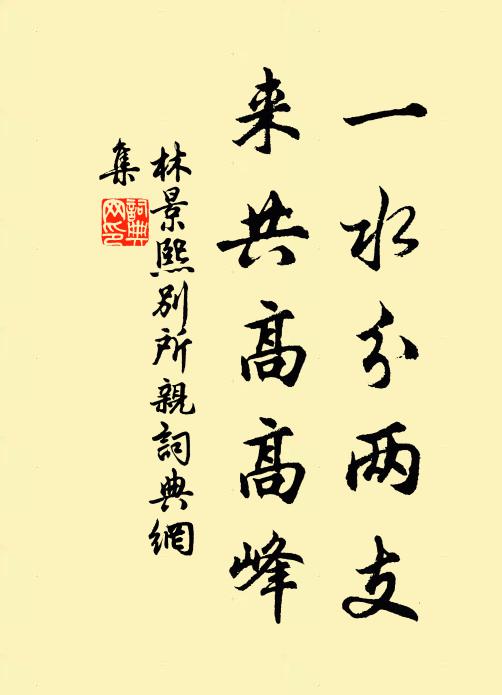 一水分两支
来共高高峰
林景熙别所親詞典網
集
詞典网印